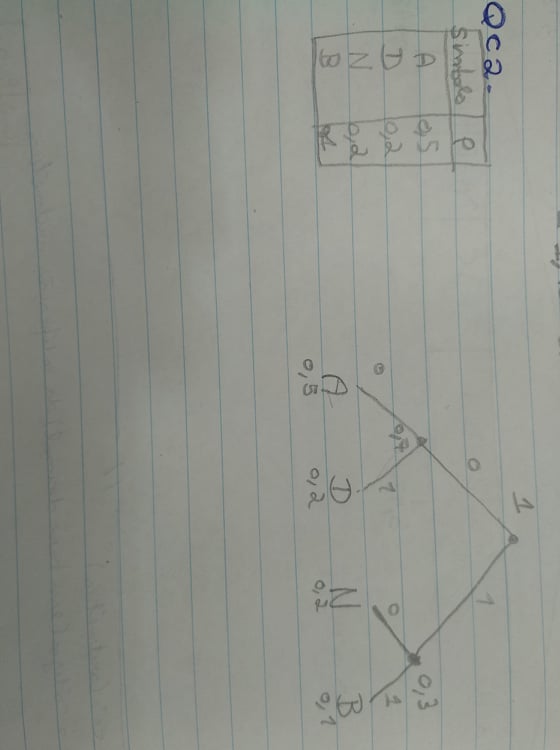 QC2.
Símbolo P
A 0,5
D 0,2
N 0,2
B
1
0 1
0,7 0,3
0 1 0 1
A D N B
0,5 0,2 0,2 0,1